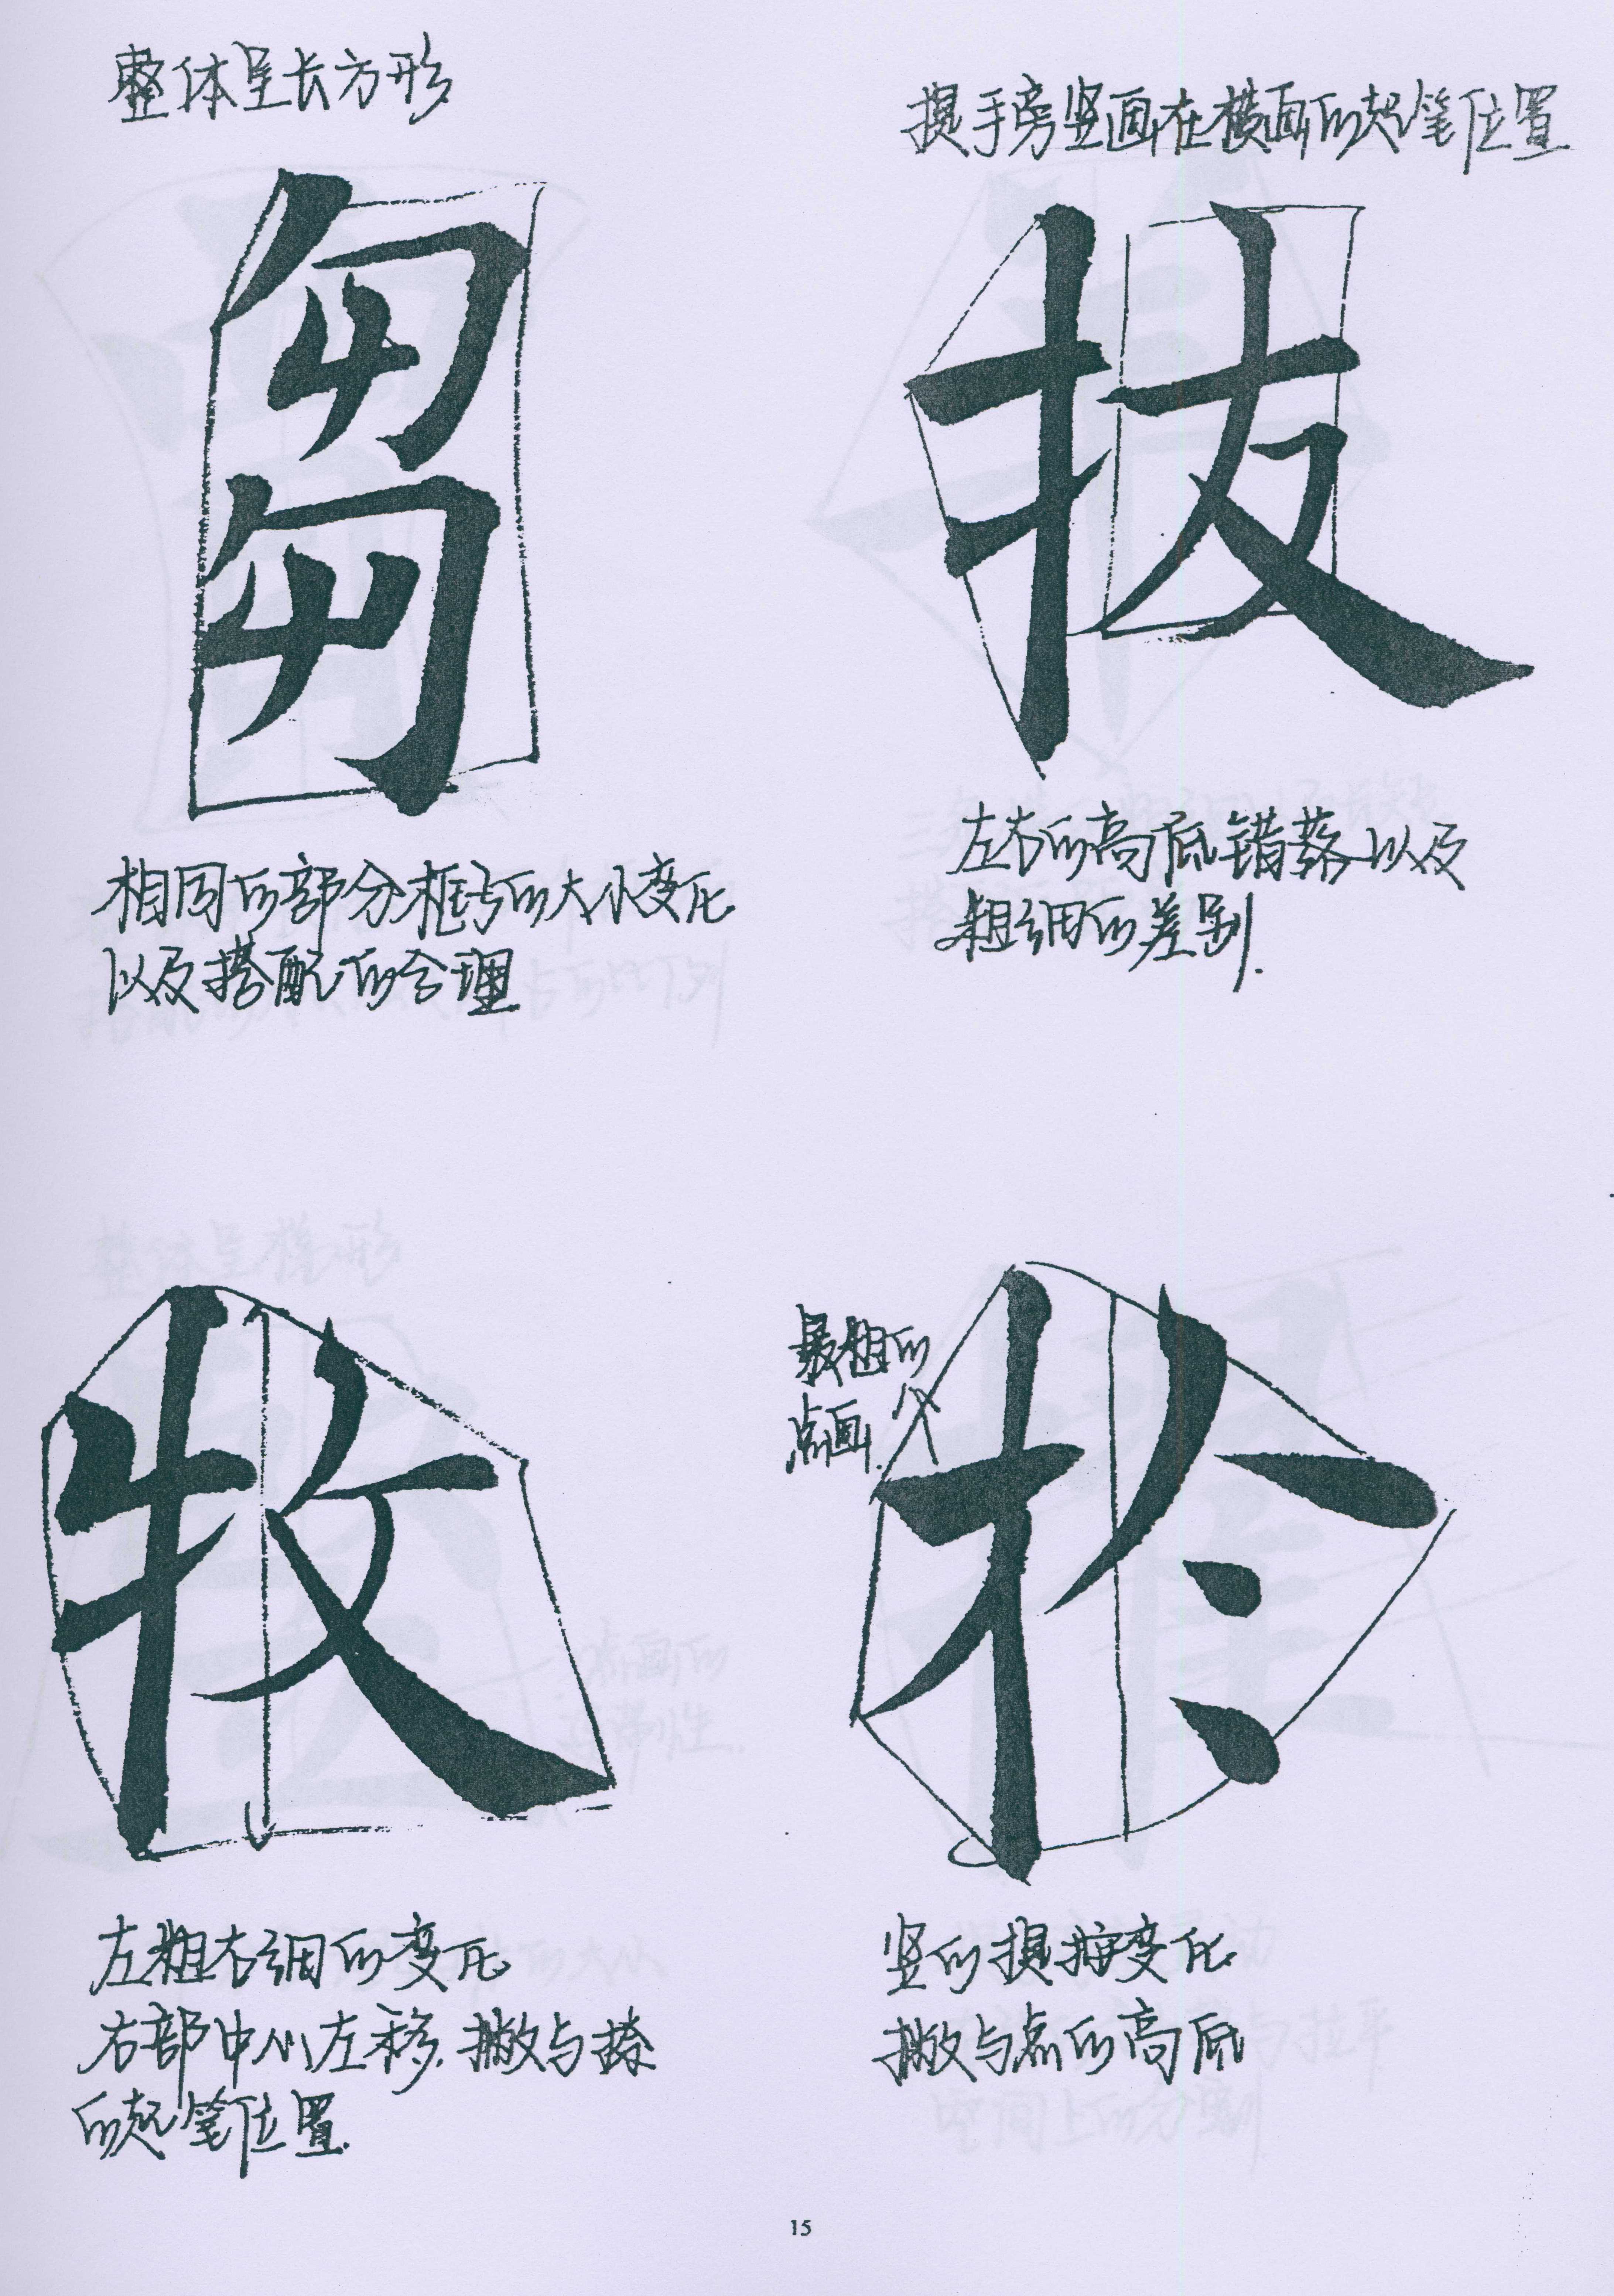 整体呈长方形
芻
相同的部分框与的大小变化
以及搭配的合理
提手旁竖画在横画的起笔位置
拔
左右的高低错落以及
粗细的差别.
牧
左粗右细的变化
右部中心左移.撇与捺
的起笔位置.
最粗的
点画.
竖的提按变化
撇与点的高低
15